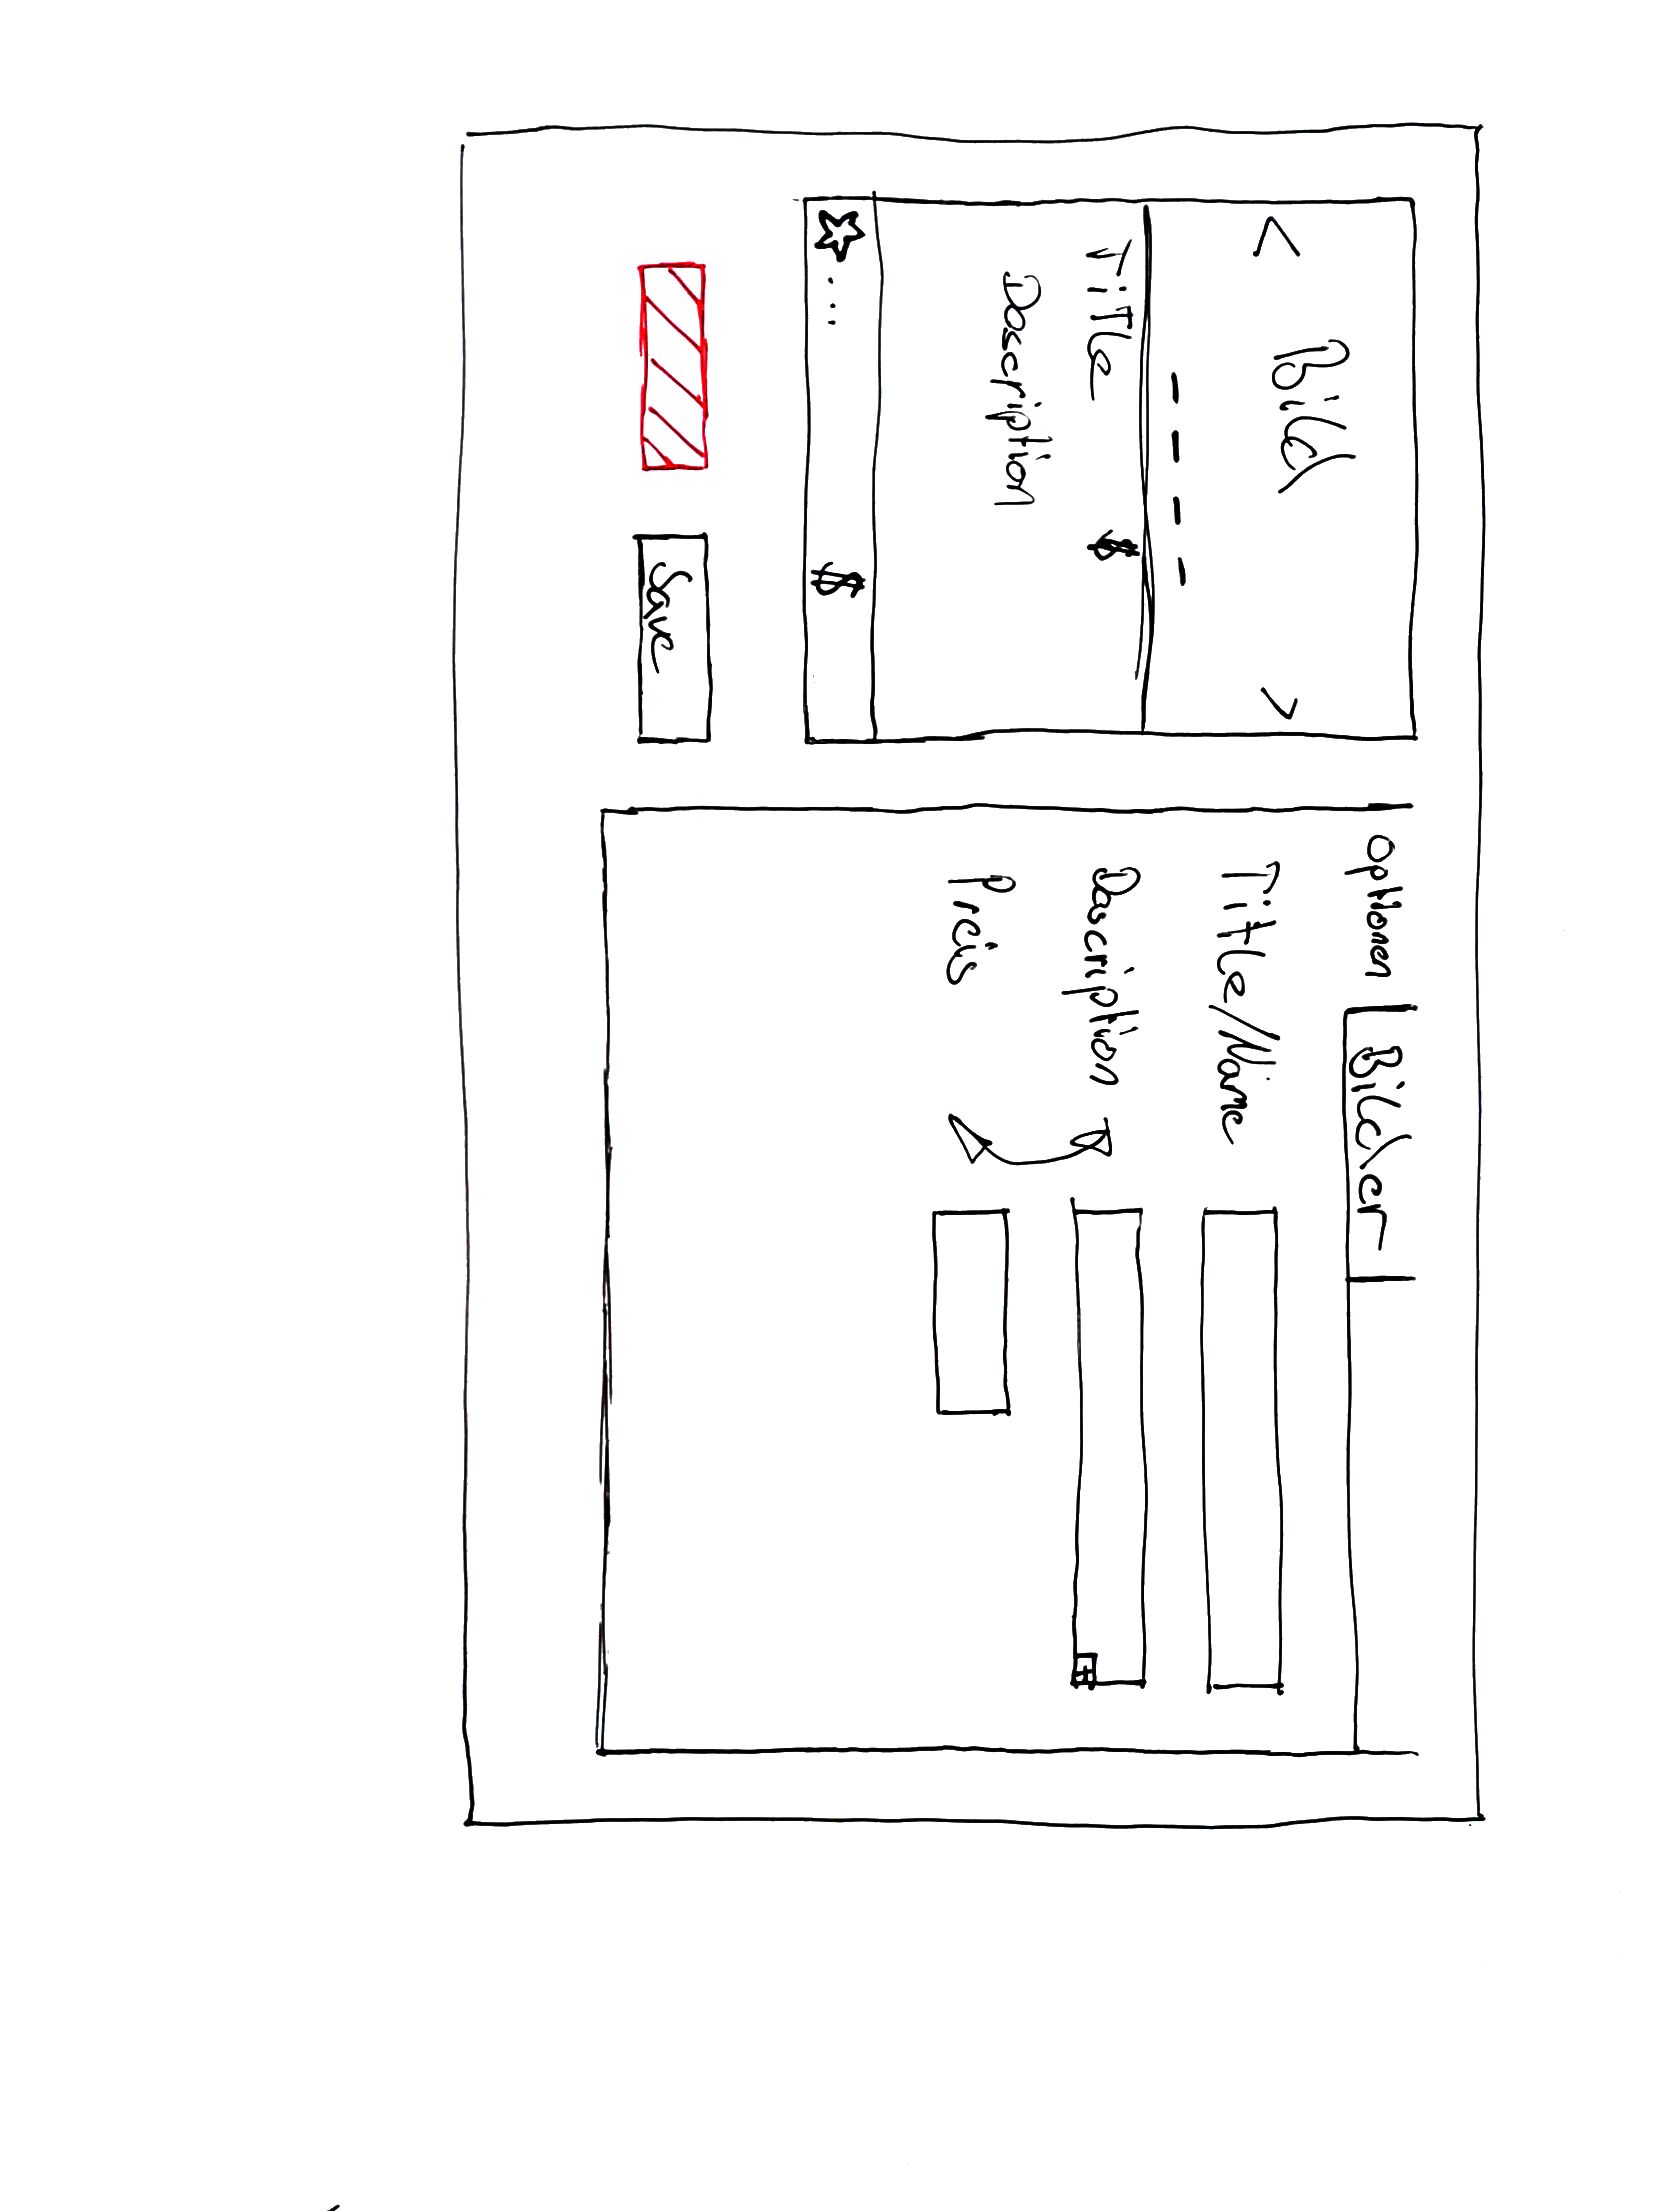 Bild
< >
Title $
Description
... $
Save
Optionen Bilder
Title/Name
Description
Preis